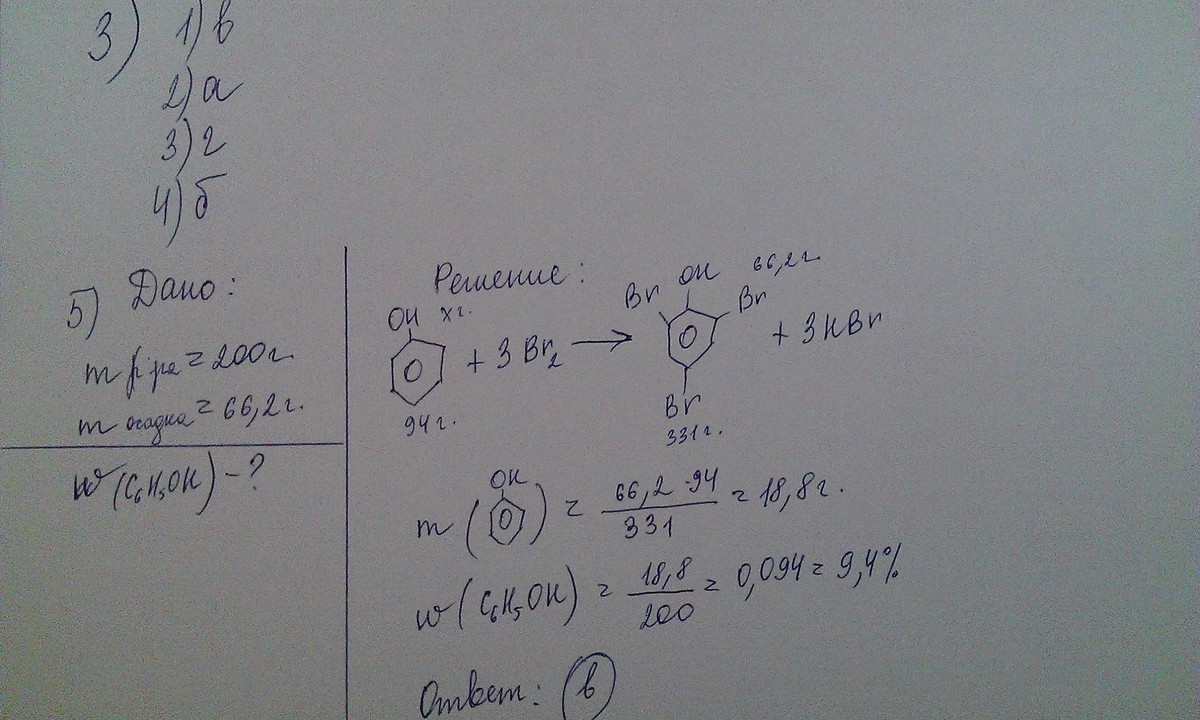 3) 1) в
2) а
3) г
4) б
5) Дано:
m р-ра = 200 г.
m осадка = 66,2 г.
w (C₆H₅OH) - ?
Решение:
OH x г.
+ 3 Br₂ →
94 г.
OH 66,2 г.
Br Br
+ 3HBr
Br
331 г.
m ( OH ) = 66,2 · 94 / 331 = 18,8 г.
w (C₆H₅OH) = 18,8 / 200 = 0,094 = 9,4%
Ответ: в